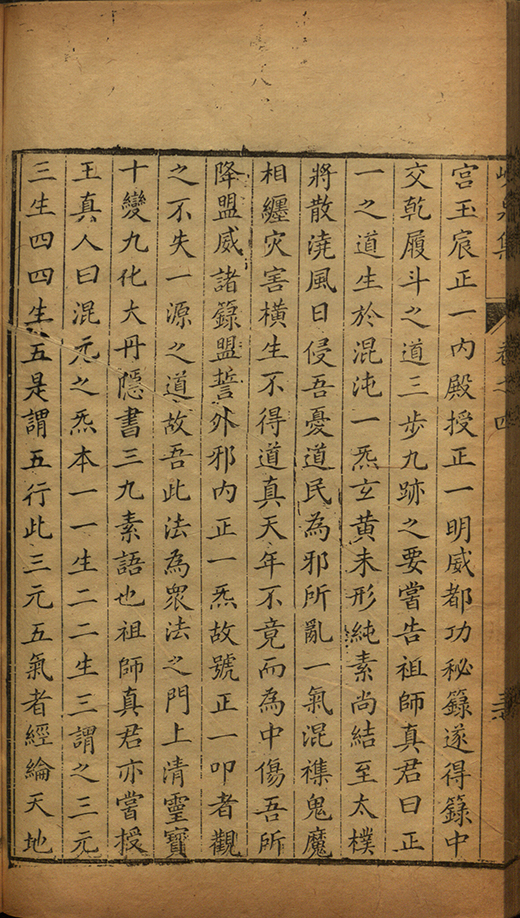 峴泉集 卷之四
宮玉宸正一內殿授正一明威都功秘籙遂得籙中
交乾履斗之道三步九跡之要嘗告祖師真君曰正
一之道生於混沌一炁玄黃未形純素尚結至太樸
將散澆風日侵吾憂道民為邪所亂一氣混襍鬼魔
相纏灾害橫生不得道真天年不竟而為中傷吾所
降盟威諸籙盟誓外邪內正一炁故號正一叩者觀
之不失一源之道故吾此法為眾法之門上清靈寶
十變九化大丹隱書三九素語也祖師真君亦嘗授
王真人曰混元之炁本一一生二二生三謂之三元
三生四四生五是謂五行此三元五氣者經綸天地